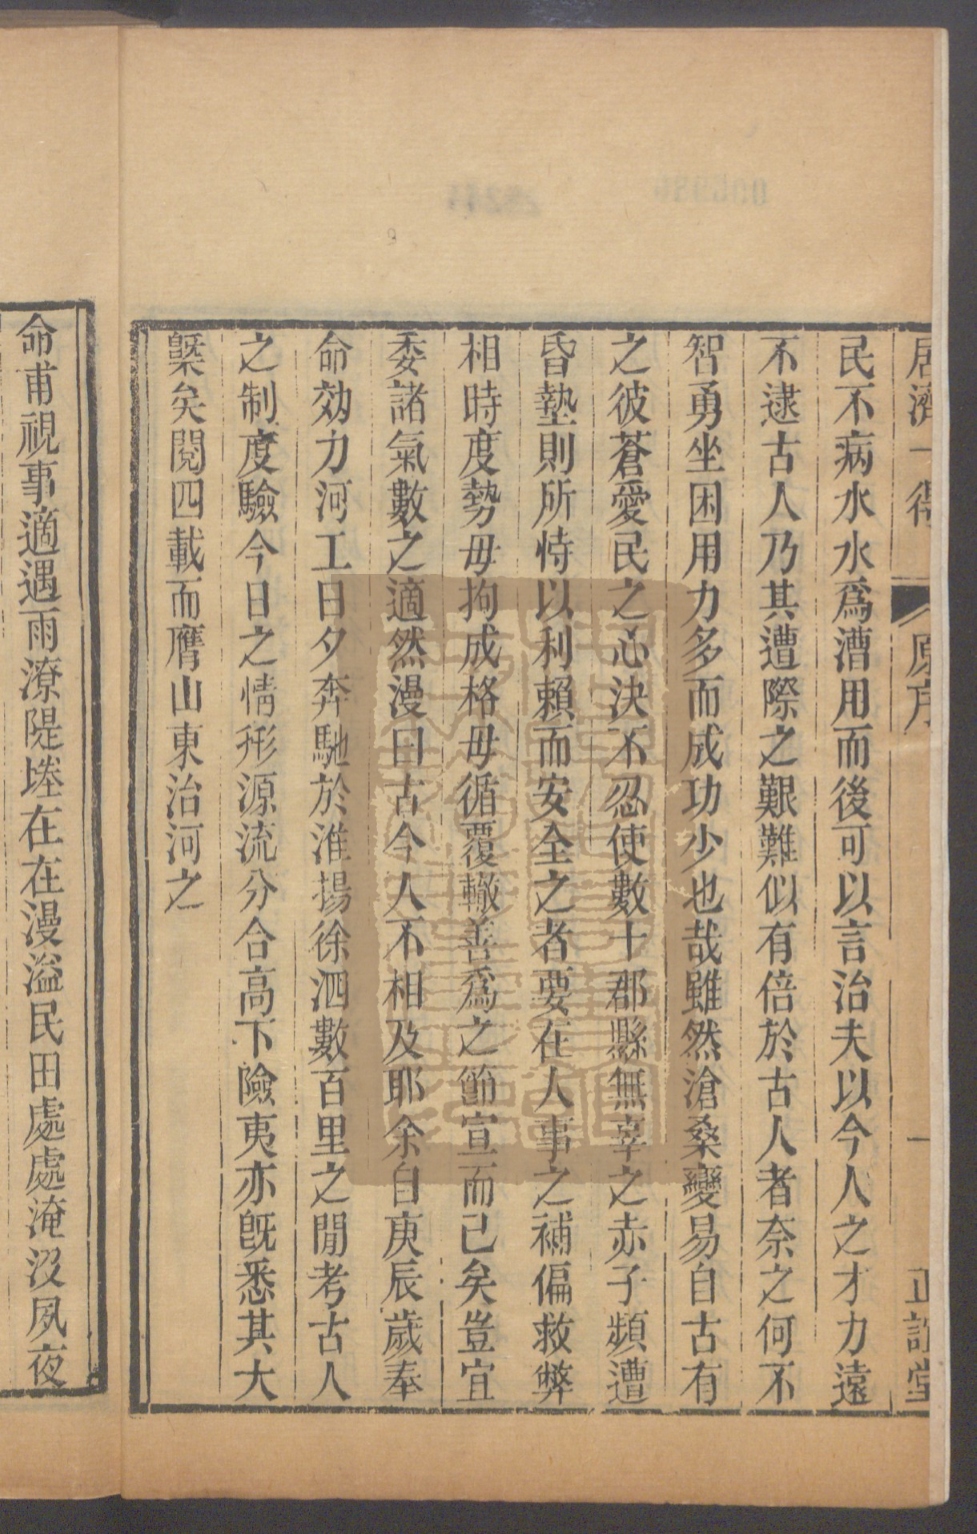 居濟一得 原序 一 正誼堂
民不病水水爲漕用而後可以言治夫以今人之才力遠
不逮古人乃其遭際之艱難似有倍於古人者奈之何不
智勇坐困用力多而成功少也哉雖然滄桑變易自古有
之彼蒼愛民之心決不忍使數十郡縣無辜之赤子頻遭
昏墊則所恃以利賴而安全之者要在人事之補偏救弊
相時度勢毋拘成格毋循覆轍善爲之節宣而已矣豈宜
委諸氣數之適然漫曰古今人不相及耶余自庚辰歲奉
命効力河工日夕奔馳於淮揚徐泗數百里之閒考古人
之制度驗今日之情形源流分合高下險夷亦旣悉其大
槩矣閱四載而膺山東治河之
命甫視事適遇雨潦隄埝在在漫溢民田處處淹沒夙夜